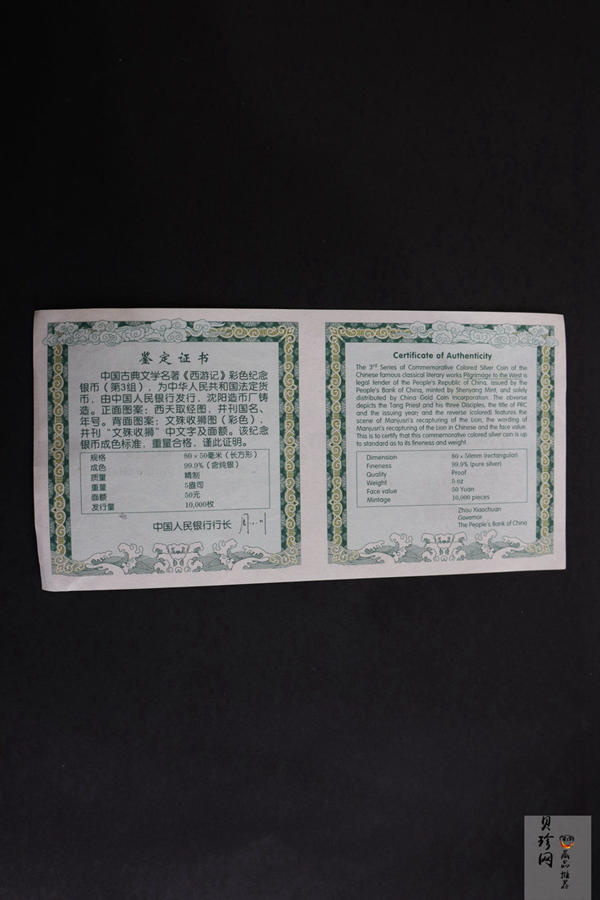 鉴定证书
中国古典文学名著《西游记》彩色纪念
银币（第3组），为中华人民共和国法定货
币，由中国人民银行发行，沈阳造币厂铸
造。正面图案：西天取经图，并刊国名、
年号。背面图案：文殊收狮图（彩色），
并刊“文殊收狮”中文字及面额。该纪念
银币成色标准，重量合格，谨此证明。
规格 80×50毫米（长方形）
成色 99.9%（含纯银）
质量 精制
重量 5盎司
面额 50元
发行量 10,000枚
中国人民银行行长
Certificate of Authenticity
The 3rd Series of Commemorative Colored Silver Coin of the
Chinese famous classical literary works Pilgrimage to the West is
legal tender of the People's Republic of China, issued by the
People's Bank of China, minted by Shenyang Mint, and solely
distributed by China Gold Coin Incorporation. The obverse
depicts the Tang Priest and his three Disciples, the title of PRC
and the issuing year and the reverse (colored) features the
scene of Manjusri's recapturing of the Lion, the wording of
Manjusri's recapturing of the Lion in Chinese and the face value.
This is to certify that this commemorative colored silver coin is up
to standard as to its fineness and weight.
Dimension 80 x 50mm (rectangular)
Fineness 99.9% (pure silver)
Quality Proof
Weight 5 oz
Face value 50 Yuan
Mintage 10,000 pieces
Zhou Xiaochuan
Governor
The People's Bank of China
贝珍网
藏品推荐